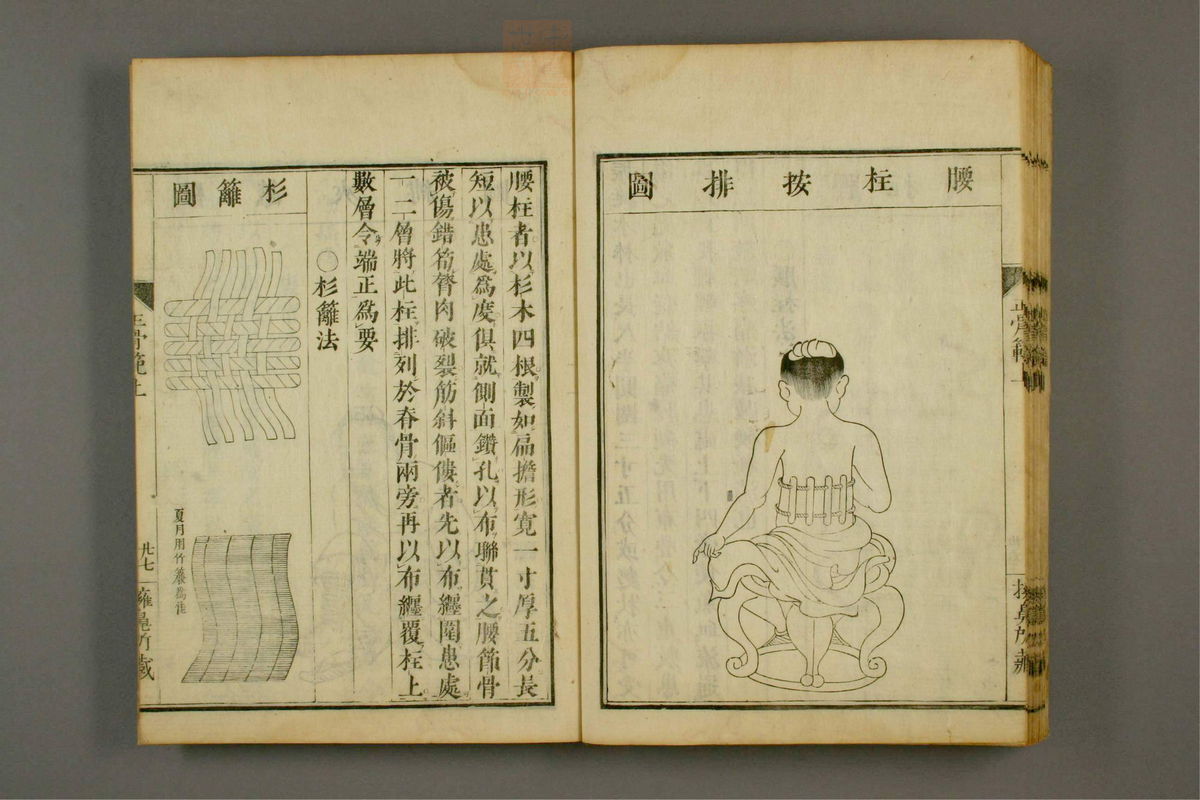 腰柱按排圖
腰柱者以杉木四根製如扁擔形寬一寸厚五分長
短以患處爲度俱就側面鑽孔以布聯貫之腰節骨
被傷錯筍膂肉破裂筋斜傴僂者先以布纏圍患處
一二層將此柱排列於脊骨兩旁再以布纏覆柱上
數層令端正爲要
〇杉籬法
杉籬圖
夏月用竹簾爲佳
正骨範上
廿七